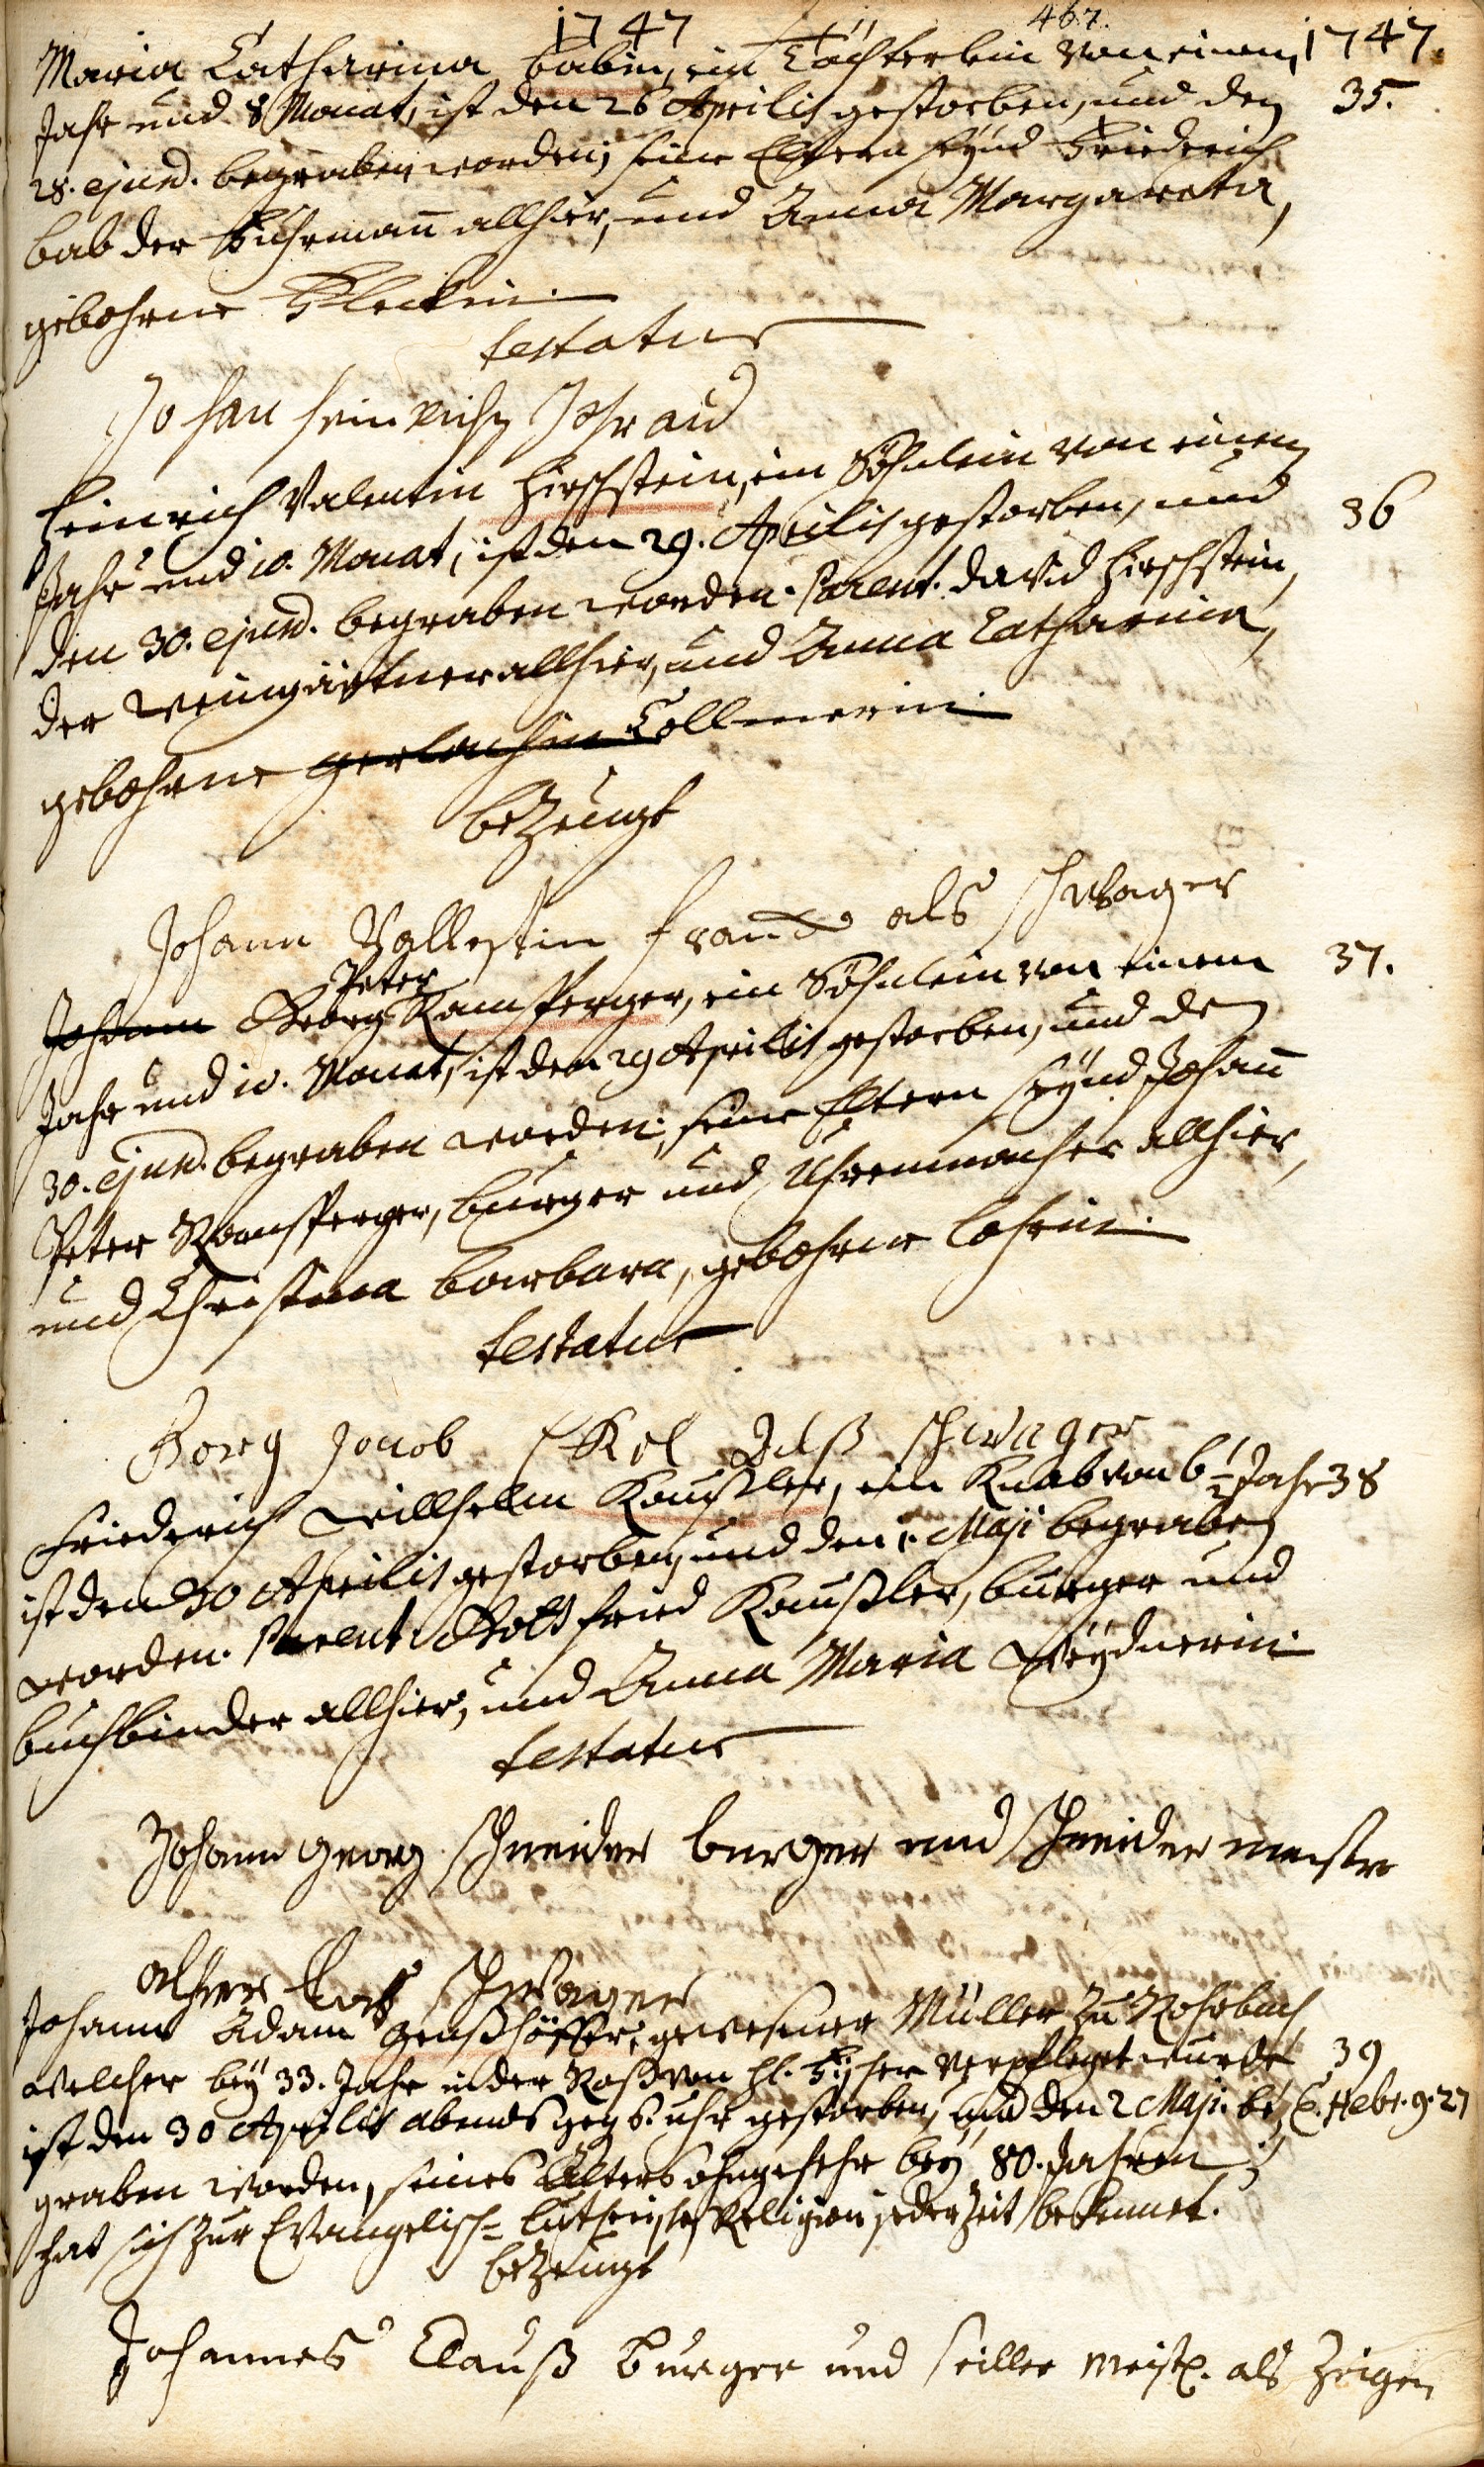 1747 467. 1747.
Maria Catharina Babin, ein Töchterlein von einem
Jahr und 8 Monat, ist den 26 Aprilis gestorben, und den 35.
28. ejusd. begraben worden; seine Eltern seynd Friederich
Bab der Fuhrmañ allhier, und Anna Margareta,
gebohrne Fleckin.
testatur
Johan Heinrich
Heinrich Valentin Hirschstein, ein Söhnlein von einem
Jahr und 10. Monat, ist den 29. Aprilis gestorben, und 36
den 30. ejusd. begraben worden. Parent. David Hirschstein,
der Weingärtner allhier, und Anna Catharina,
gebohrne Gerlachin Collmerin
bezeugt
Johann Vallentin Franck als schwager
Peter
Johann Georg Ramsperger, ein Söhnlein von einem 37.
Jahr und 10. Monat, ist den 29 Aprilis gestorben, und den
30. ejusd. begraben worden; seine Eltern seynd Johañ
Peter Ramsperger, Burger und Uhrenmacher allhier,
und Christina Barbara, gebohrne Lohrin.
testatur
Gorg Jacob Ekel Alß schwager
Friederich Willhelm Kaußler, ein Knab von 6 1/2 Jahr 38
ist den 30 Aprilis gestorben, und den 1. Maji begraben
worden. Parent. Gottfried Kaußler, Burger und
Buchbinder allhier, und Anna Maria Weydnerin.
testatur
Johann Georg Schneider burger und Schneider meister
alhier als schwager
Johann Adam Genshöffer, gewesener Müller zu Rohrbach
welcher bey 33. Jahr in der Kost von H. Fischer verpfleget wurde 39
ist den 30 Aprilis abends geg 6. uhr gestorben, und den 2 Maji. be- T. Hebr. 9. 27
graben worden, seines Alters ohngefehr bey 80. Jahren
hat sich zur Evangelisch-Lutherische Religion jederzeit bekennet.
bezeugt
Johannes Clauß Burger und seiller meist. als Zeigen